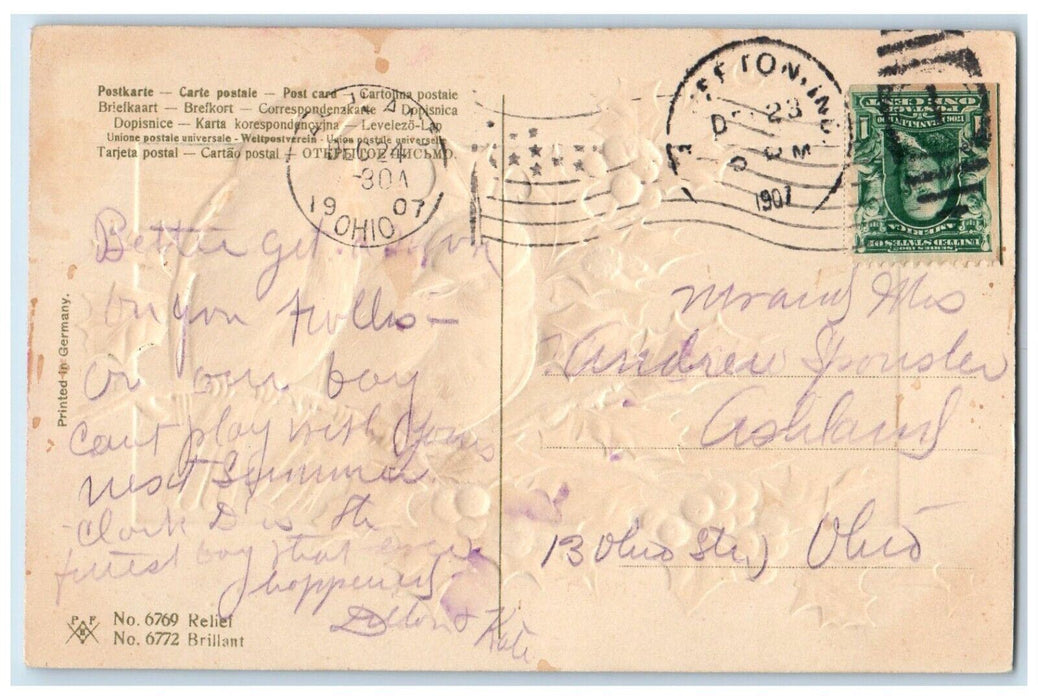 Postkarte — Carte postale — Post card — Cartolina postale
Briefkaart — Brefkort — Correspondenzkarte — Dopisnica
Dopisnice — Karta korespondencyjna — Levelező-Lap
Unione postale universale - Weltpostverein - Union postale universelle
Tarjeta postal — Cartão postal — ОТКРЫТОЕ ПИСЬМО.
DEC 24
-30A
19 07
OHIO
23
1907
SERIES 1902
UNITED STATES OF
AMERICA
ONE CENT
1 1
Better get
on you
or our boy
cant play with yours
next Summer
Clark D is the
finest boy that ever
happened
& Kate
Mr and Mrs
Andrew Sponsler
Ashland
13 Ohio St Ohio
Printed in Germany.
P F B
No. 6769 Relief
No. 6772 Brillant